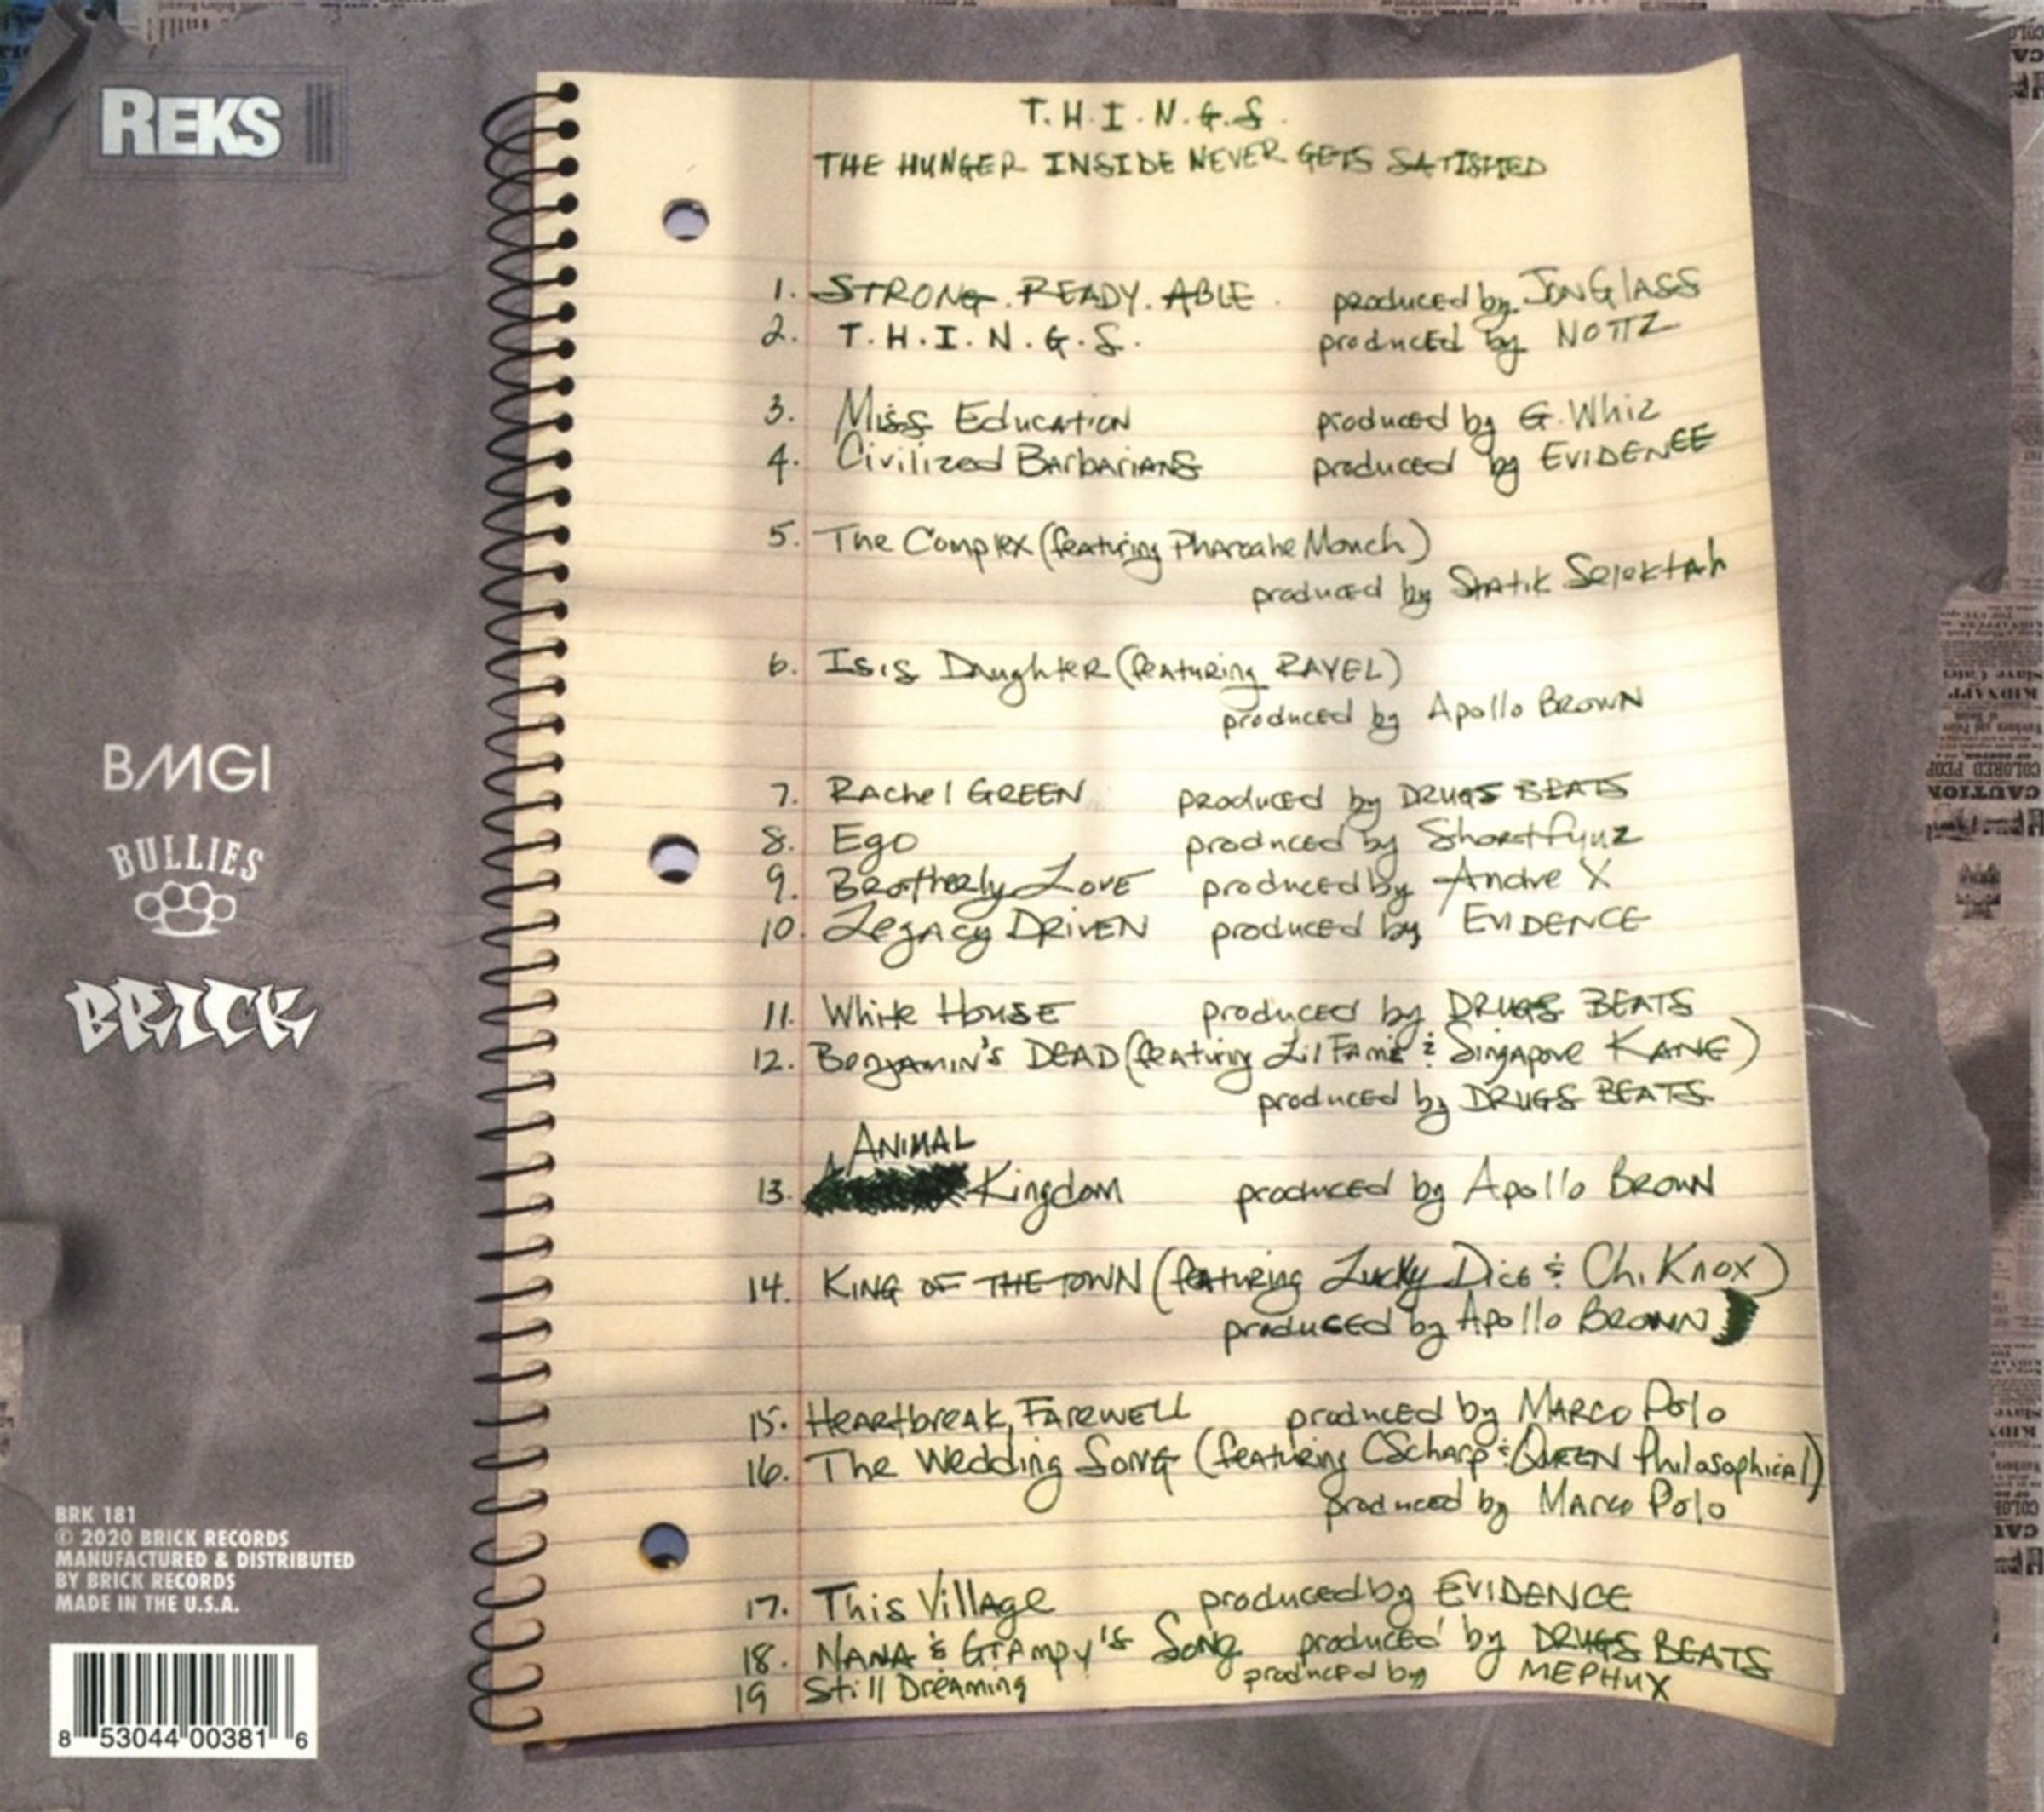 REKS
T.H.I.N.G.S.
THE HUNGER INSIDE NEVER GETS SATISFIED
1. STRONG. READY. ABLE. produced by JONGlASS
2. T.H.I.N.G.S. produced by NOTTZ
3. Miss Education produced by G. Whiz
4. Civilized Barbarians produced by EVIDENCE
5. The Complex (featuring Pharoahe Monch)
produced by Statik Selektah
6. Isis Daughter (featuring RAYEL)
produced by Apollo BROWN
7. Rachel GREEN produced by DRUGS BEATS
8. Ego produced by Shortfyuz
9. Brotherly Love produced by Andre X
10. Legacy DRIVEN produced by EVIDENCE
11. White House produced by DRUGS BEATS
12. Benjamin's DEAD (featuring Lil Fame & Singapore KANE)
produced by DRUGS BEATS
ANIMAL
13. Kingdom produced by Apollo BROWN
14. KING OF THE TOWN (featuring Lucky Dice & Ch. Knox)
produced by Apollo BROWN
15. Heartbreak, FAREWELL produced by MARCO Polo
16. The Wedding Song (featuring CScharp & QUEEN Philosophical)
produced by Marco Polo
17. This Village produced by EVIDENCE
18. NANA & Grampy's Song produced by DRUGS BEATS
19 Still Dreaming produced by MEPHUX
BMGI
BULLIES
BRICK
BRK 181
© 2020 BRICK RECORDS
MANUFACTURED & DISTRIBUTED
BY BRICK RECORDS
MADE IN THE U.S.A.
8 53044 00381 6
COLORED PEOP
CAUTION
KIDNAPP